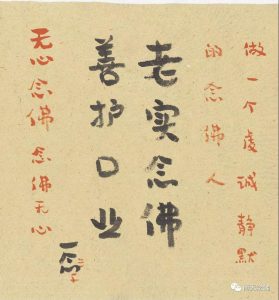 做一个虔诚静默
的念佛人
老实念佛
善护口业
无心念佛 念佛无心